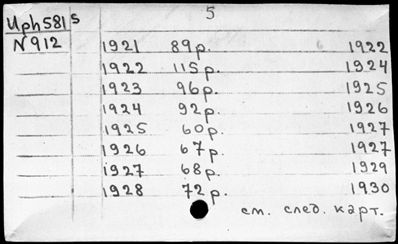 5
Иph581 s
N912 1921 89р. 6 1922
1922 115р. 1924
1923 96р. 1925
1924 92р. 1926
1925 60р. 1927
1926 67р. 1927
1927 68р. 1929
1928 72р. 1930
см. след. карт.